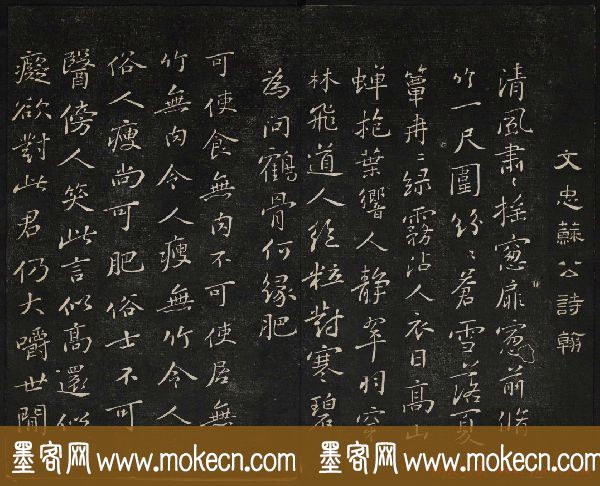 文忠蘇公詩翰
清風肅〻搖窓扉窓前脩
竹一尺圍紛〻蒼雪落夏
簟冉〻綠霧沾人衣日高山
蟬抱葉響人靜翠羽穿
林飛道人絕粒對寒碧
為問鶴骨何緣肥
可使食無肉不可使居無
竹無肉令人瘦無竹令人
俗人瘦尚可肥俗士不可
醫傍人笑此言似高還似
癡欲對此君仍大嚼世間
墨客网 www.mokecn.com 墨客网 www.mokecn.com